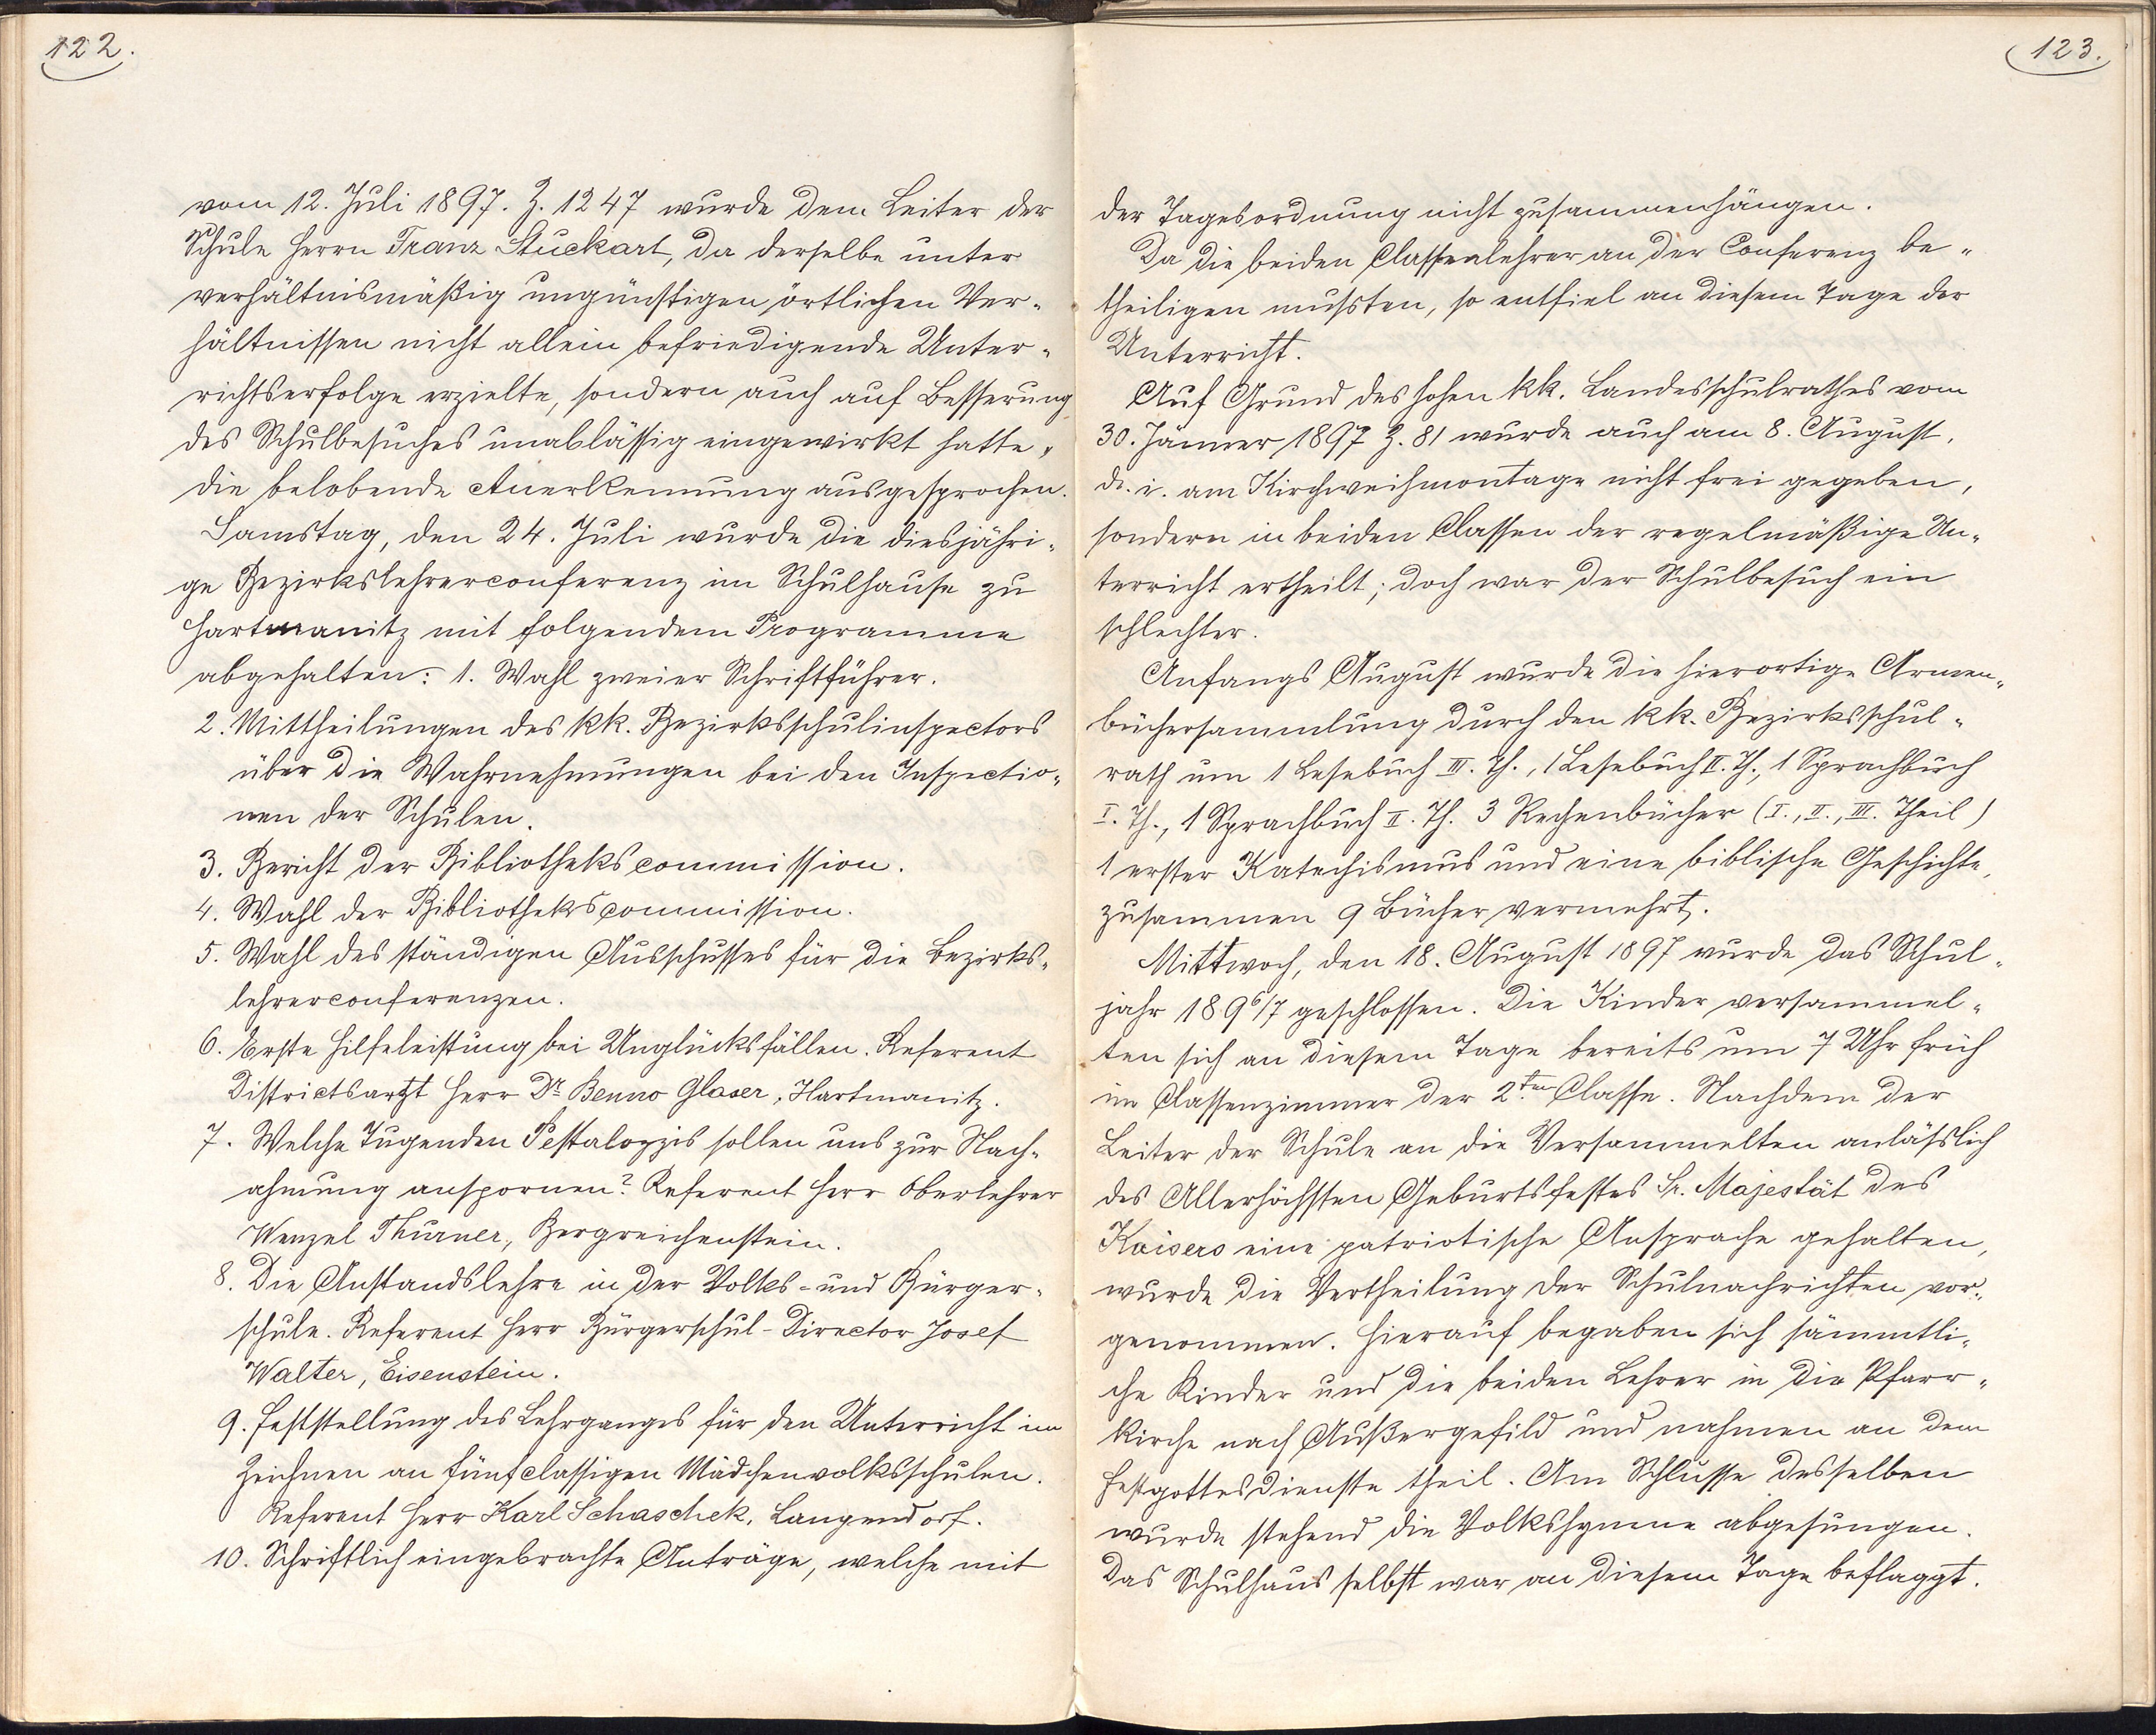 122.
vom 12. Juli 1897. Z. 1247 wurde dem Leiter der
Schule Herrn Franz Stuckart, da derselbe unter
verhältnismäßig ungünstigen örtlichen Ver-
hältnissen nicht allein befriedigende Unter-
richtserfolge erzielte, sondern auch auf Besserung
des Schulbesuches unablässig eingewirkt hatte,
die belobende Anerkennung ausgesprochen.
Samstag, den 24. Juli wurde die diesjähri-
ge Bezirkslehrerconferenz im Schulhause zu
Hartmanitz mit folgendem Programme
abgehalten: 1. Wahl zweier Schriftführer.
2. Mittheilungen des kk. Bezirksschulinspectors
über die Wahrnehmungen bei den Inspectio-
nen der Schulen.
3. Bericht der Bibliothekscommission.
4. Wahl der Bibliothekscommission.
5. Wahl des ständigen Ausschusses für die Bezirks-
lehrerconferenzen.
6. Erste Hilfeleistung bei Unglücksfällen. Referent
Districtsartzt Herr Dr. Benno Glaser, Hartmanitz.
7. Welche Tugenden Pestalozzis sollen uns zur Nach-
ahmung anspornen? Referent Herr Oberlehrer
Wenzel Thurner, Bergreichenstein.
8. Die Anstandslehre in der Volks- und Bürger-
schule. Referent Herr Bürgerschul-Director Josef
Walter, Eisenstein.
9. Feststellung des Lehrganges für den Unterricht im
Zeichnen an fünfclassigen Mädchenvolksschulen.
Referent Herr Karl Schaschek, Langendorf.
10. Schriftlich eingebrachte Anträge, welche mit
123.
der Tagesordnung nicht zusammenhängen.
Da die beiden Classenlehrer an der Conferenz be-
theiligen mußten, so entfiel an diesem Tage der
Unterricht.
Auf Grund des hohen kk. Landesschulrathes vom
30. Jänner 1897 Z. 81 wurde auch am 8. August,
d. i. am Kirchweihmontage nicht frei gegeben,
sondern in beiden Classen der regelmäßige Un-
terricht ertheilt; doch war der Schulbesuch ein
schlechter.
Anfangs August wurde die hierortige Armen-
büchersammlung durch den kk. Bezirksschul-
rath um 1 Lesebuch III. Th., 1 Lesebuch II. Th., 1 Sprachbuch
I. Th., 1 Sprachbuch II. Th. 3 Rechenbücher (I., II., III. Theil)
1 erster Katechismus und eine biblische Geschichte,
zusammen 9 Bücher vermehrt.
Mittwoch, den 18. August 1897 wurde das Schul-
jahr 1896/7 geschlossen. Die Kinder versammel-
ten sich an diesem Tage bereits um 7 Uhr früh
im Classenzimmer der 2.ten Classe. Nachdem der
Leiter der Schule an die Versammelten anläßlich
des Allerhöchsten Geburtsfestes Sr. Majestät des
Kaisers eine patriotische Ansprache gehalten,
wurde die Vertheilung der Schulnachrichten vor-
genommen. Hierauf begaben sich sämmtli-
che Kinder und die beiden Lehrer in die Pfarr-
kirche nach Außergefild und nahmen an dem
Festgottesdienste theil. Am Schlusse desselben
wurde stehend die Volkshymne abgesungen.
Das Schulhaus selbst war an diesem Tage beflaggt.